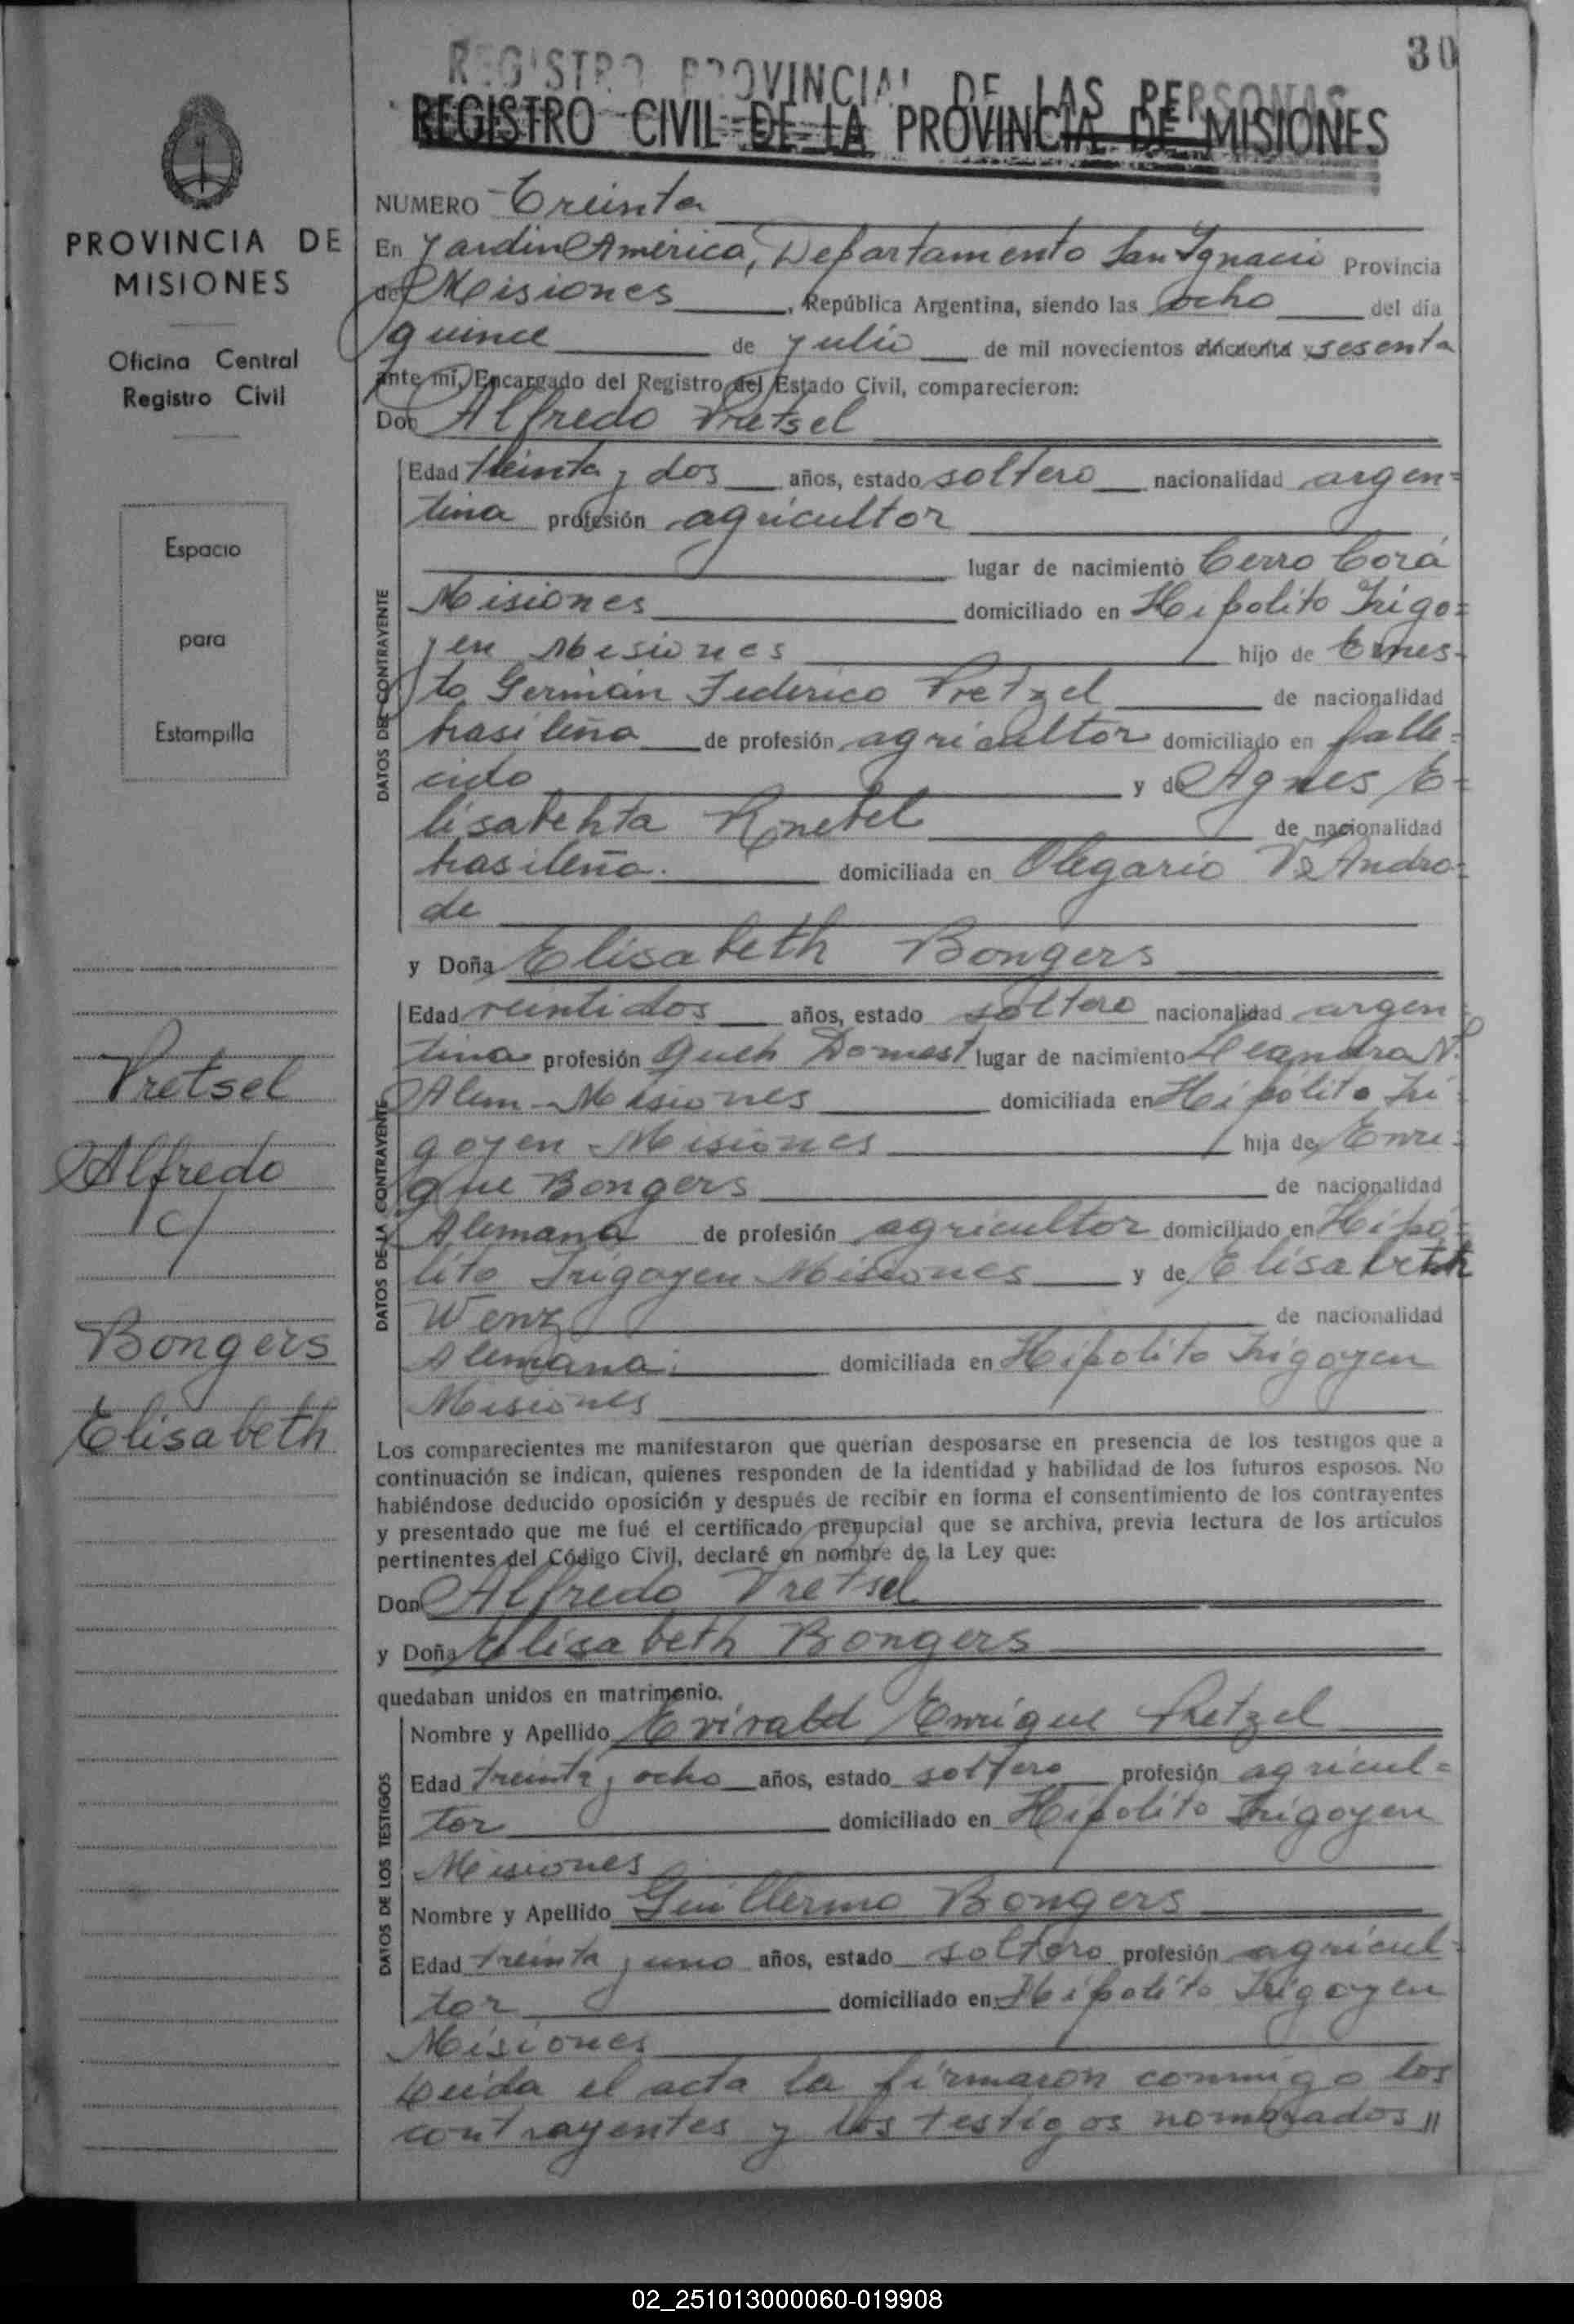 30
REGISTRO PROVINCIAL DE LAS PERSONAS
REGISTRO CIVIL DE LA PROVINCIA DE MISIONES
PROVINCIA DE
MISIONES
Oficina Central
Registro Civil
Espacio
para
Estampilla
Pretsel
Alfredo
c/
Bongers
Elisabeth
NUMERO Treinta
En Jardin America, Departamento San Ignacio Provincia
de Misiones, República Argentina, siendo las ocho del día
quince de julio de mil novecientos cincuenta y sesenta
ante mi, Encargado del Registro del Estado Civil, comparecieron:
Don Alfredo Pretsel
DATOS DEL CONTRAYENTE
Edad treinta y dos años, estado soltero nacionalidad argen=
tina profesión agricultor
lugar de nacimiento Cerro Corá
Misiones domiciliado en Hipolito Irigo=
yen Misiones hijo de Ernes-
to Germán Federico Pretzel de nacionalidad
brasileña de profesión agricultor domiciliado en falle=
cido y de Agnes E=
lisabehta Knebel de nacionalidad
brasileña. domiciliada en Olegario Andra=
de
y Doña Elisabeth Bongers
DATOS DE LA CONTRAYENTE
Edad veintidos años, estado soltera nacionalidad argen=
tina profesión Queh Domest lugar de nacimiento Leandra N.
Alem - Misiones domiciliada en Hipolito Iri=
goyen - Misiones hija de Enri=
que Bongers de nacionalidad
Alemana de profesión agricultor domiciliado en Hipó=
lito Irigoyen Misiones y de Elisabeth
Wenz de nacionalidad
Alemana. domiciliada en Hipolito Irigoyen
Misiones
Los comparecientes me manifestaron que querían desposarse en presencia de los testigos que a
continuación se indican, quienes responden de la identidad y habilidad de los futuros esposos. No
habiéndose deducido oposición y después de recibir en forma el consentimiento de los contrayentes
y presentado que me fué el certificado prenupcial que se archiva, previa lectura de los artículos
pertinentes del Código Civil, declaré en nombre de la Ley que:
Don Alfredo Pretsel
y Doña Elisabeth Bongers
quedaban unidos en matrimonio.
DATOS DE LOS TESTIGOS
Nombre y Apellido Evirald Enrique Pretzel
Edad treinta y ocho años, estado soltero profesión agricul=
tor domiciliado en Hipolito Irigoyen
Misiones
Nombre y Apellido Guillermo Bongers
Edad treinta y uno años, estado soltero profesión agricul-
tor domiciliado en Hipolito Irigoyen
Misiones
Leida el acta la firmaron conmigo los
contrayentes y los testigos nombrados //
02_251013000060-019908